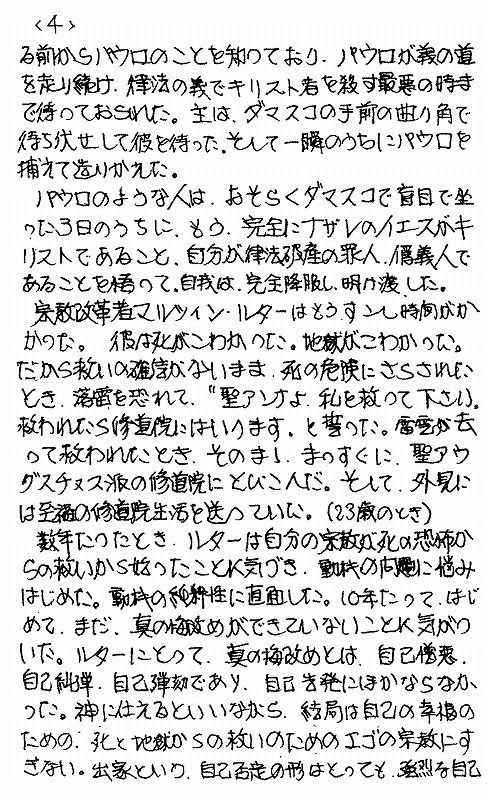 <4>
る前からパウロのことを知っており、パウロが義の道
を走り続け、律法の義でキリスト者を殺す最悪の時ま
で待っておられた。主は、ダマスコの手前の曲り角で
待ち伏せして彼を待った。そして一瞬のうちにパウロを
捕えて造りかえた。
パウロのような人は、おそらくダマスコで盲目で坐
った3日のうちに、もう、完全にナザレのイエスがキ
リストであること、自分が律法破産の罪人、偽義人で
あることを悟って、自我は、完全降服し、明け渡した。
宗教改革者マルツィン・ルターはもうすこし時間がか
かった。彼は死がこわかった。地獄がこわかった。
だから救いの確信がないまま、死の危険にさらされた
とき、落雷を恐れて、“聖アンナよ、私を救って下さい。
救われたら修道院にはいります。と誓った。雷雲が去
って救われたとき、そのまゝ、まっすぐに、聖アウ
グスチヌス派の修道院にとびこんだ。そして、外見に
は至福の修道院生活を送っていた。(23歳のとき)
数年たったとき、ルターは自分の宗教が死の恐怖か
らの救いから始ったことに気づき、動機の問題に悩み
はじめた。動機の純粋性に直面した。10年たって、はじ
めて、まだ、真の悔改めができていないことに気がつ
いた。ルターにとって、真の悔改めとは、自己憎悪、
自己糾弾、自己弾劾であり、自己告発にほかならなか
った。神に仕えるといいながら、結局は自己の幸福の
ための、死と地獄からの救いのためのエゴの宗教にす
ぎない。出家という、自己否定の形はとっても、強烈な自己